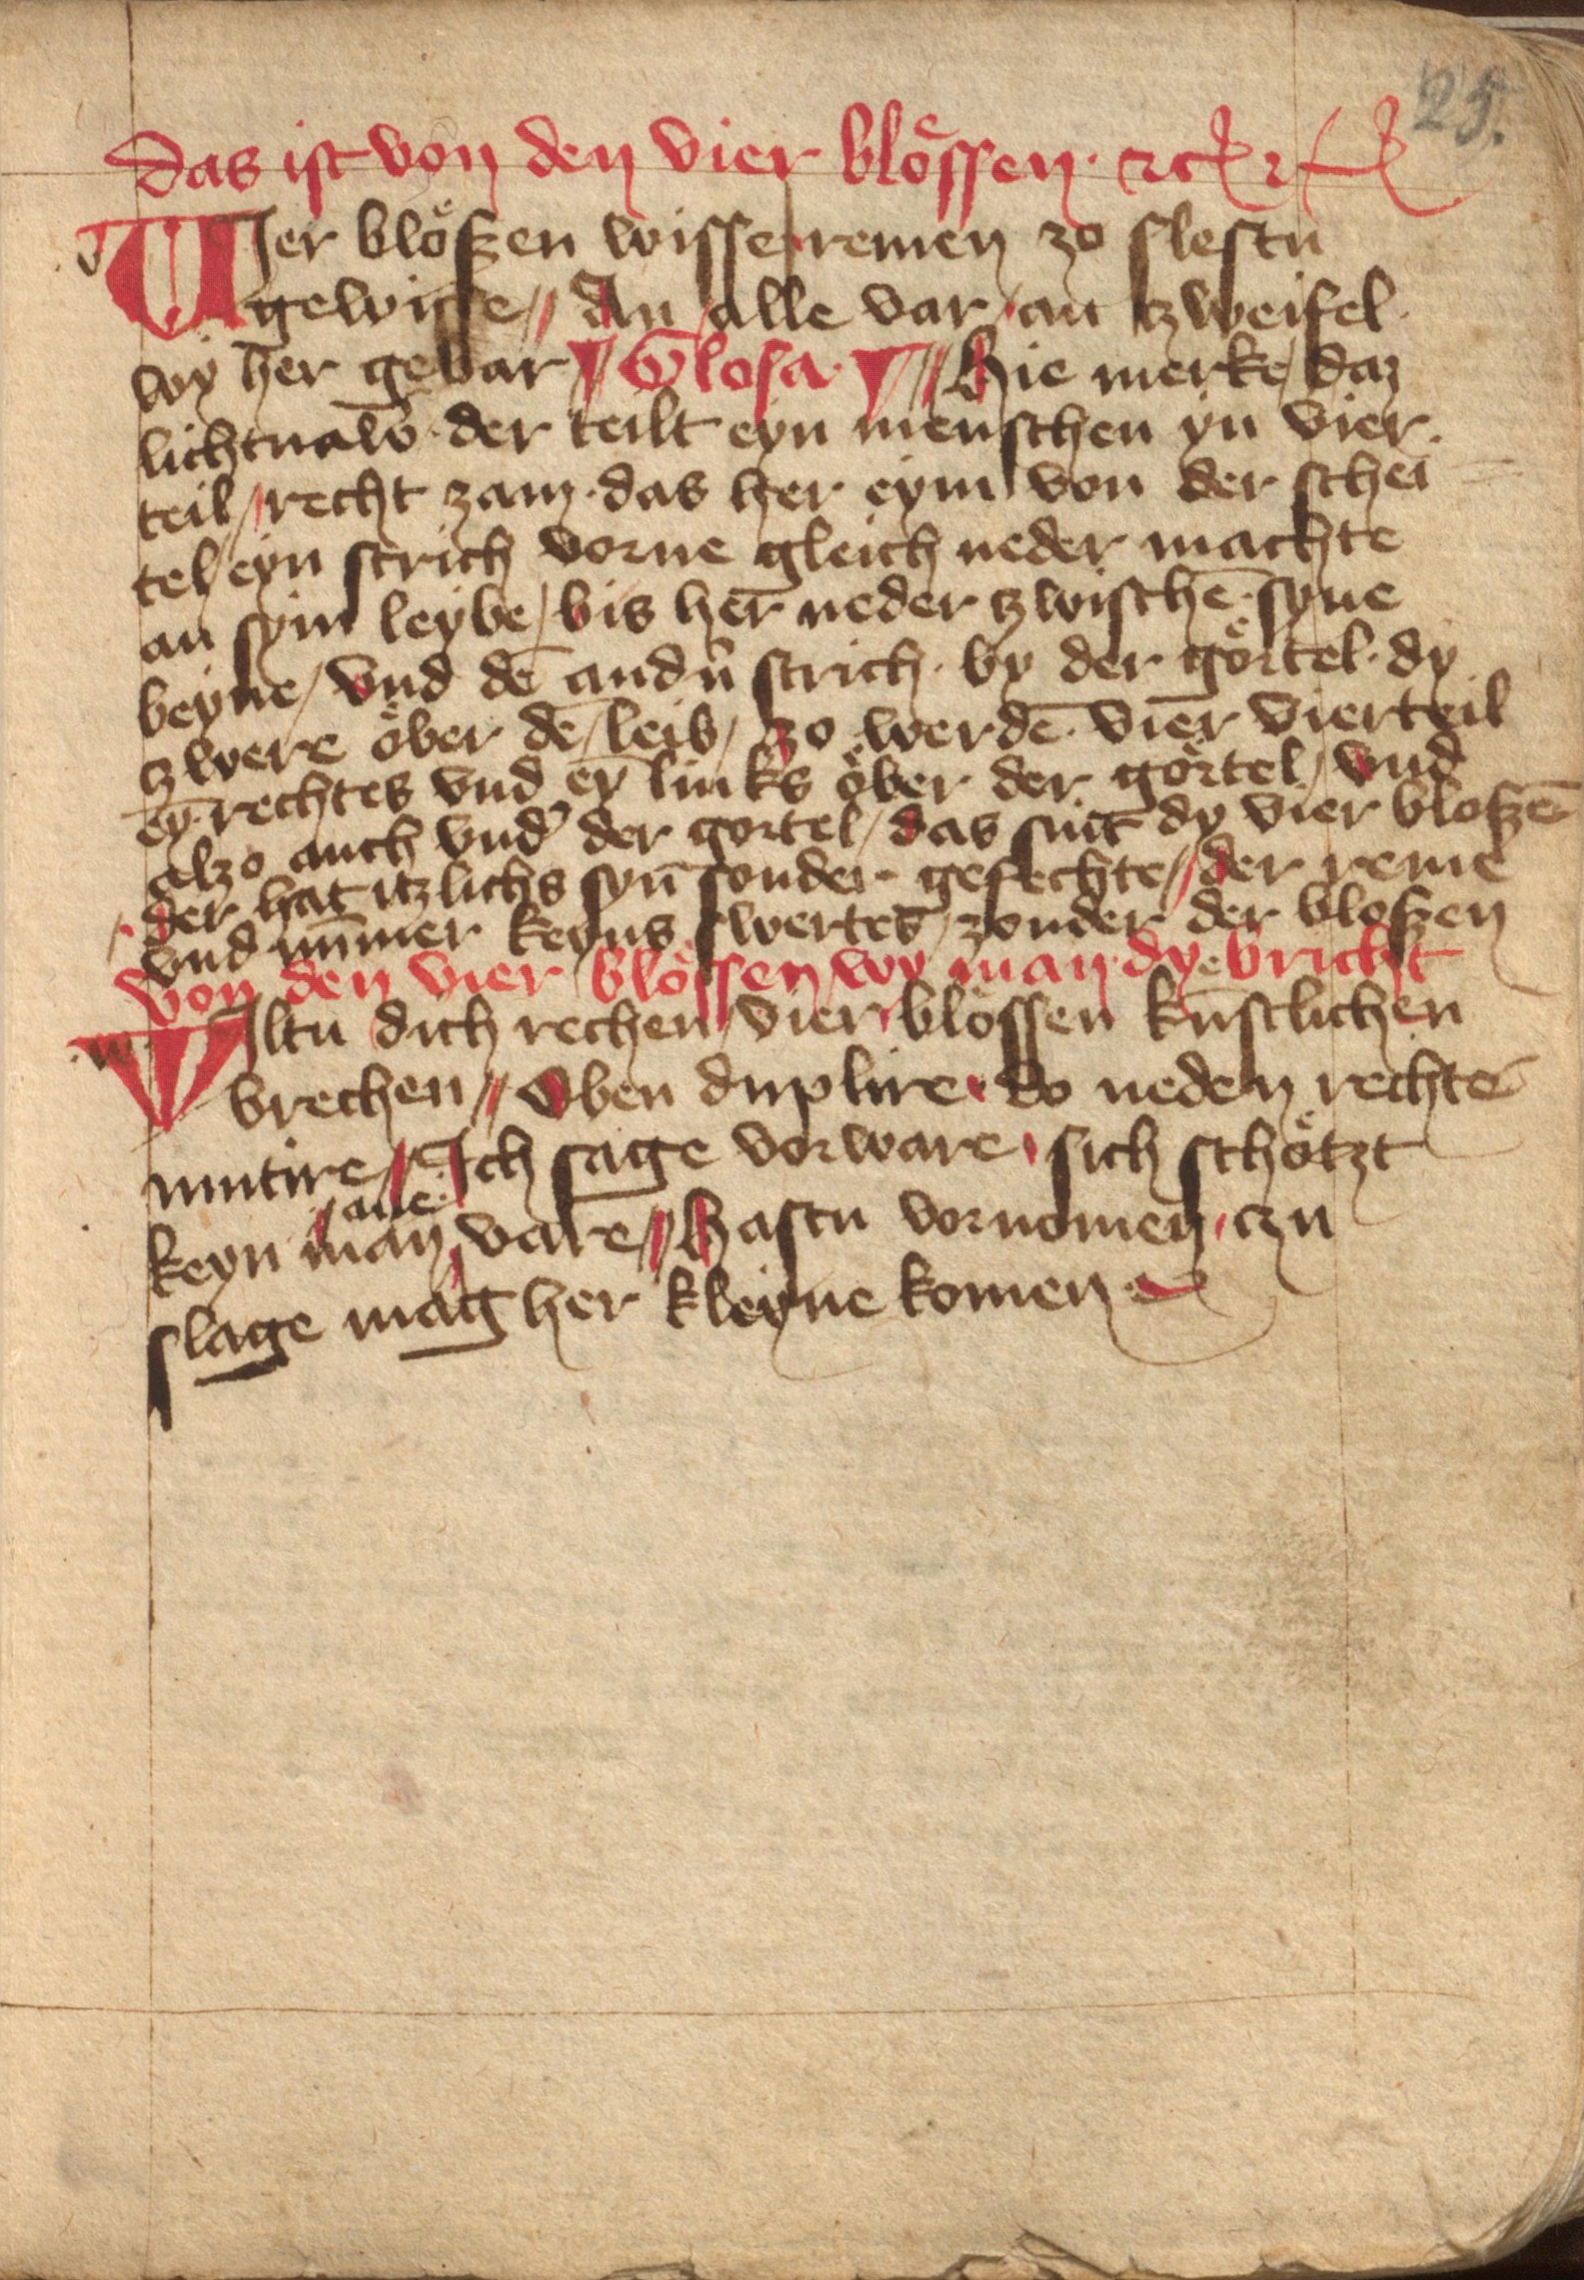 25.
das ist von den vier blössen · etc etc
VIer blößen wisse remen zo slestu
gewisse // An alle var / an tzweifel
wy her gebar // Glosa // Hie merke / daz
lichtnaw̄ · der teilt eyn menschen yn vier ·
teil / recht zam · das her eym von der schei
tel eyn strich vorne gleich neder machte
an sym leybe / bis her neder tzwischē syne
beyne / vnd dē andn̄ strich · by der görtel · dy
tzwere öber dē / leib / zo werdē vier vierteil
eȳ rechtes vnd eȳ links öber der görtel / vnd
alzo auch vnd' der gortel / das sint dy vier bloßē
der hat itzlichs syn̄ sonder gefechte // der reme
vnd nym̄mer keyns swertes / zonder der bloßen
Von den vier blössen wy man dy bricht
WIltu dich rechen / vier blössen kūnstlichen
brechen // Oben duplire · do neden rechte
mutire // Ich sage vorware · sich schötzt
ane
keyn man vare // Hastu vornomen · czu
slage mag her kleyne komen